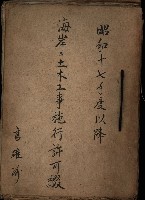 昭和十七年度以降
海岸ニ土木工事施行許可綴
高雄州